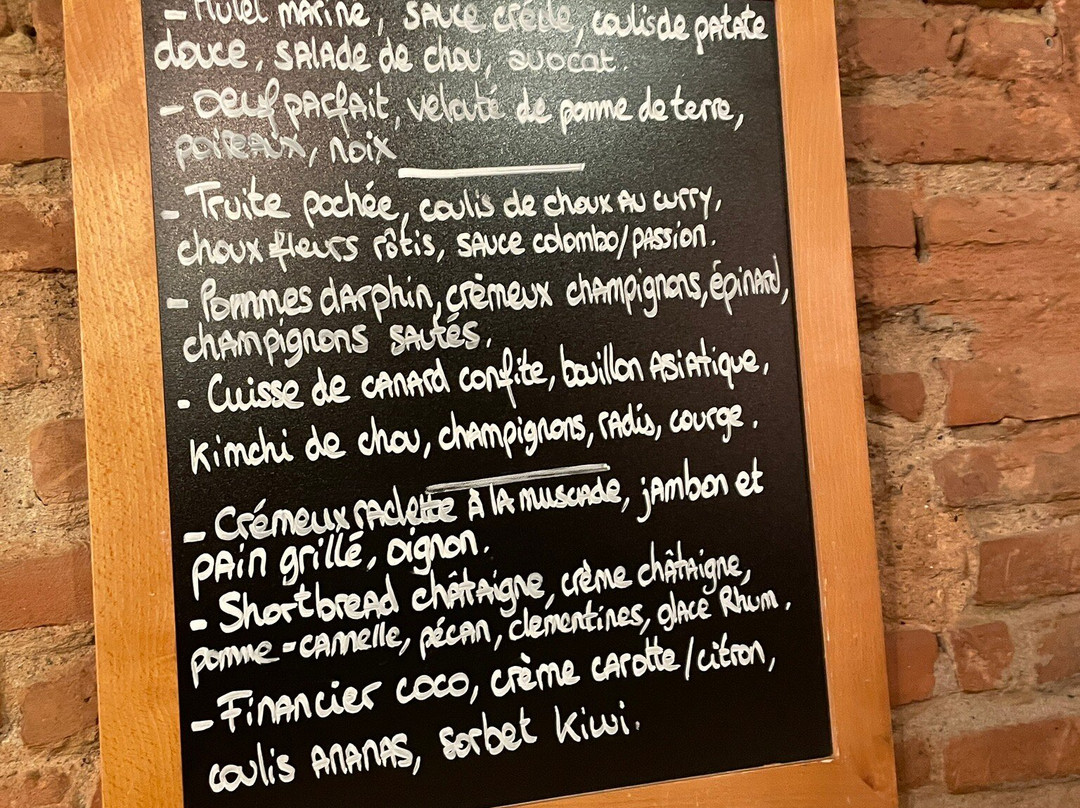 - Mulet mariné, sauce créole, coulis de patate
douce, salade de chou, avocat.
- Oeuf parfait, velouté de pomme de terre,
poireaux, noix
- Truite pochée, coulis de choux au curry,
choux fleurs rôtis, sauce colombo/passion.
- Pommes darphin, crèmeux champignons, épinard,
champignons sautés.
- Cuisse de canard confite, bouillon asiatique,
kimchi de chou, champignons, radis, courge.
- Crémeux raclette à la muscade, jambon et
pain grillé, oignon.
- Shortbread châtaigne, crème châtaigne,
pomme-cannelle, pécan, clémentines, glace Rhum.
- Financier coco, crème carotte/citron,
coulis ananas, sorbet kiwi.